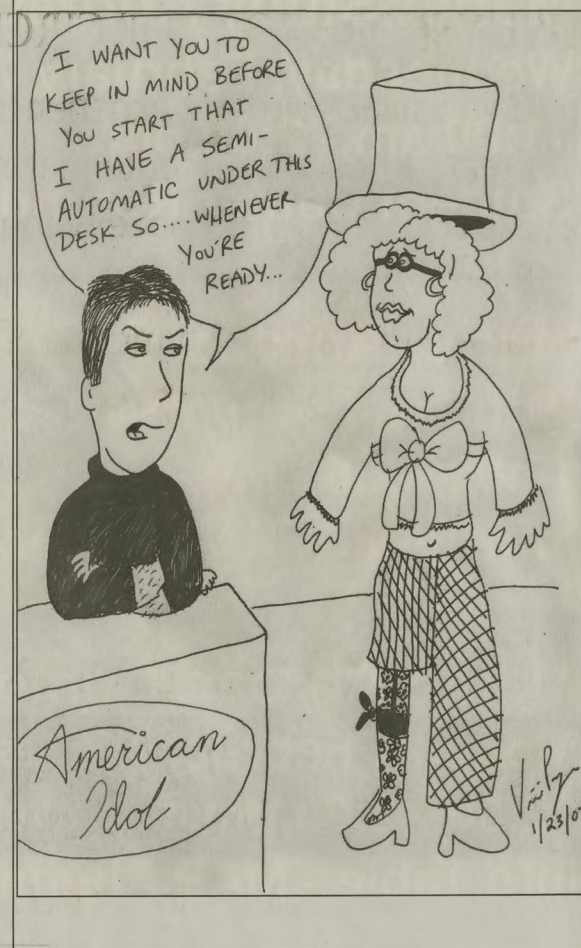 I WANT YOU TO
KEEP IN MIND BEFORE
YOU START THAT
I HAVE A SEMI-
AUTOMATIC UNDER THIS
DESK SO....WHENEVER
YOU'RE
READY...
American
Idol
1/23/07